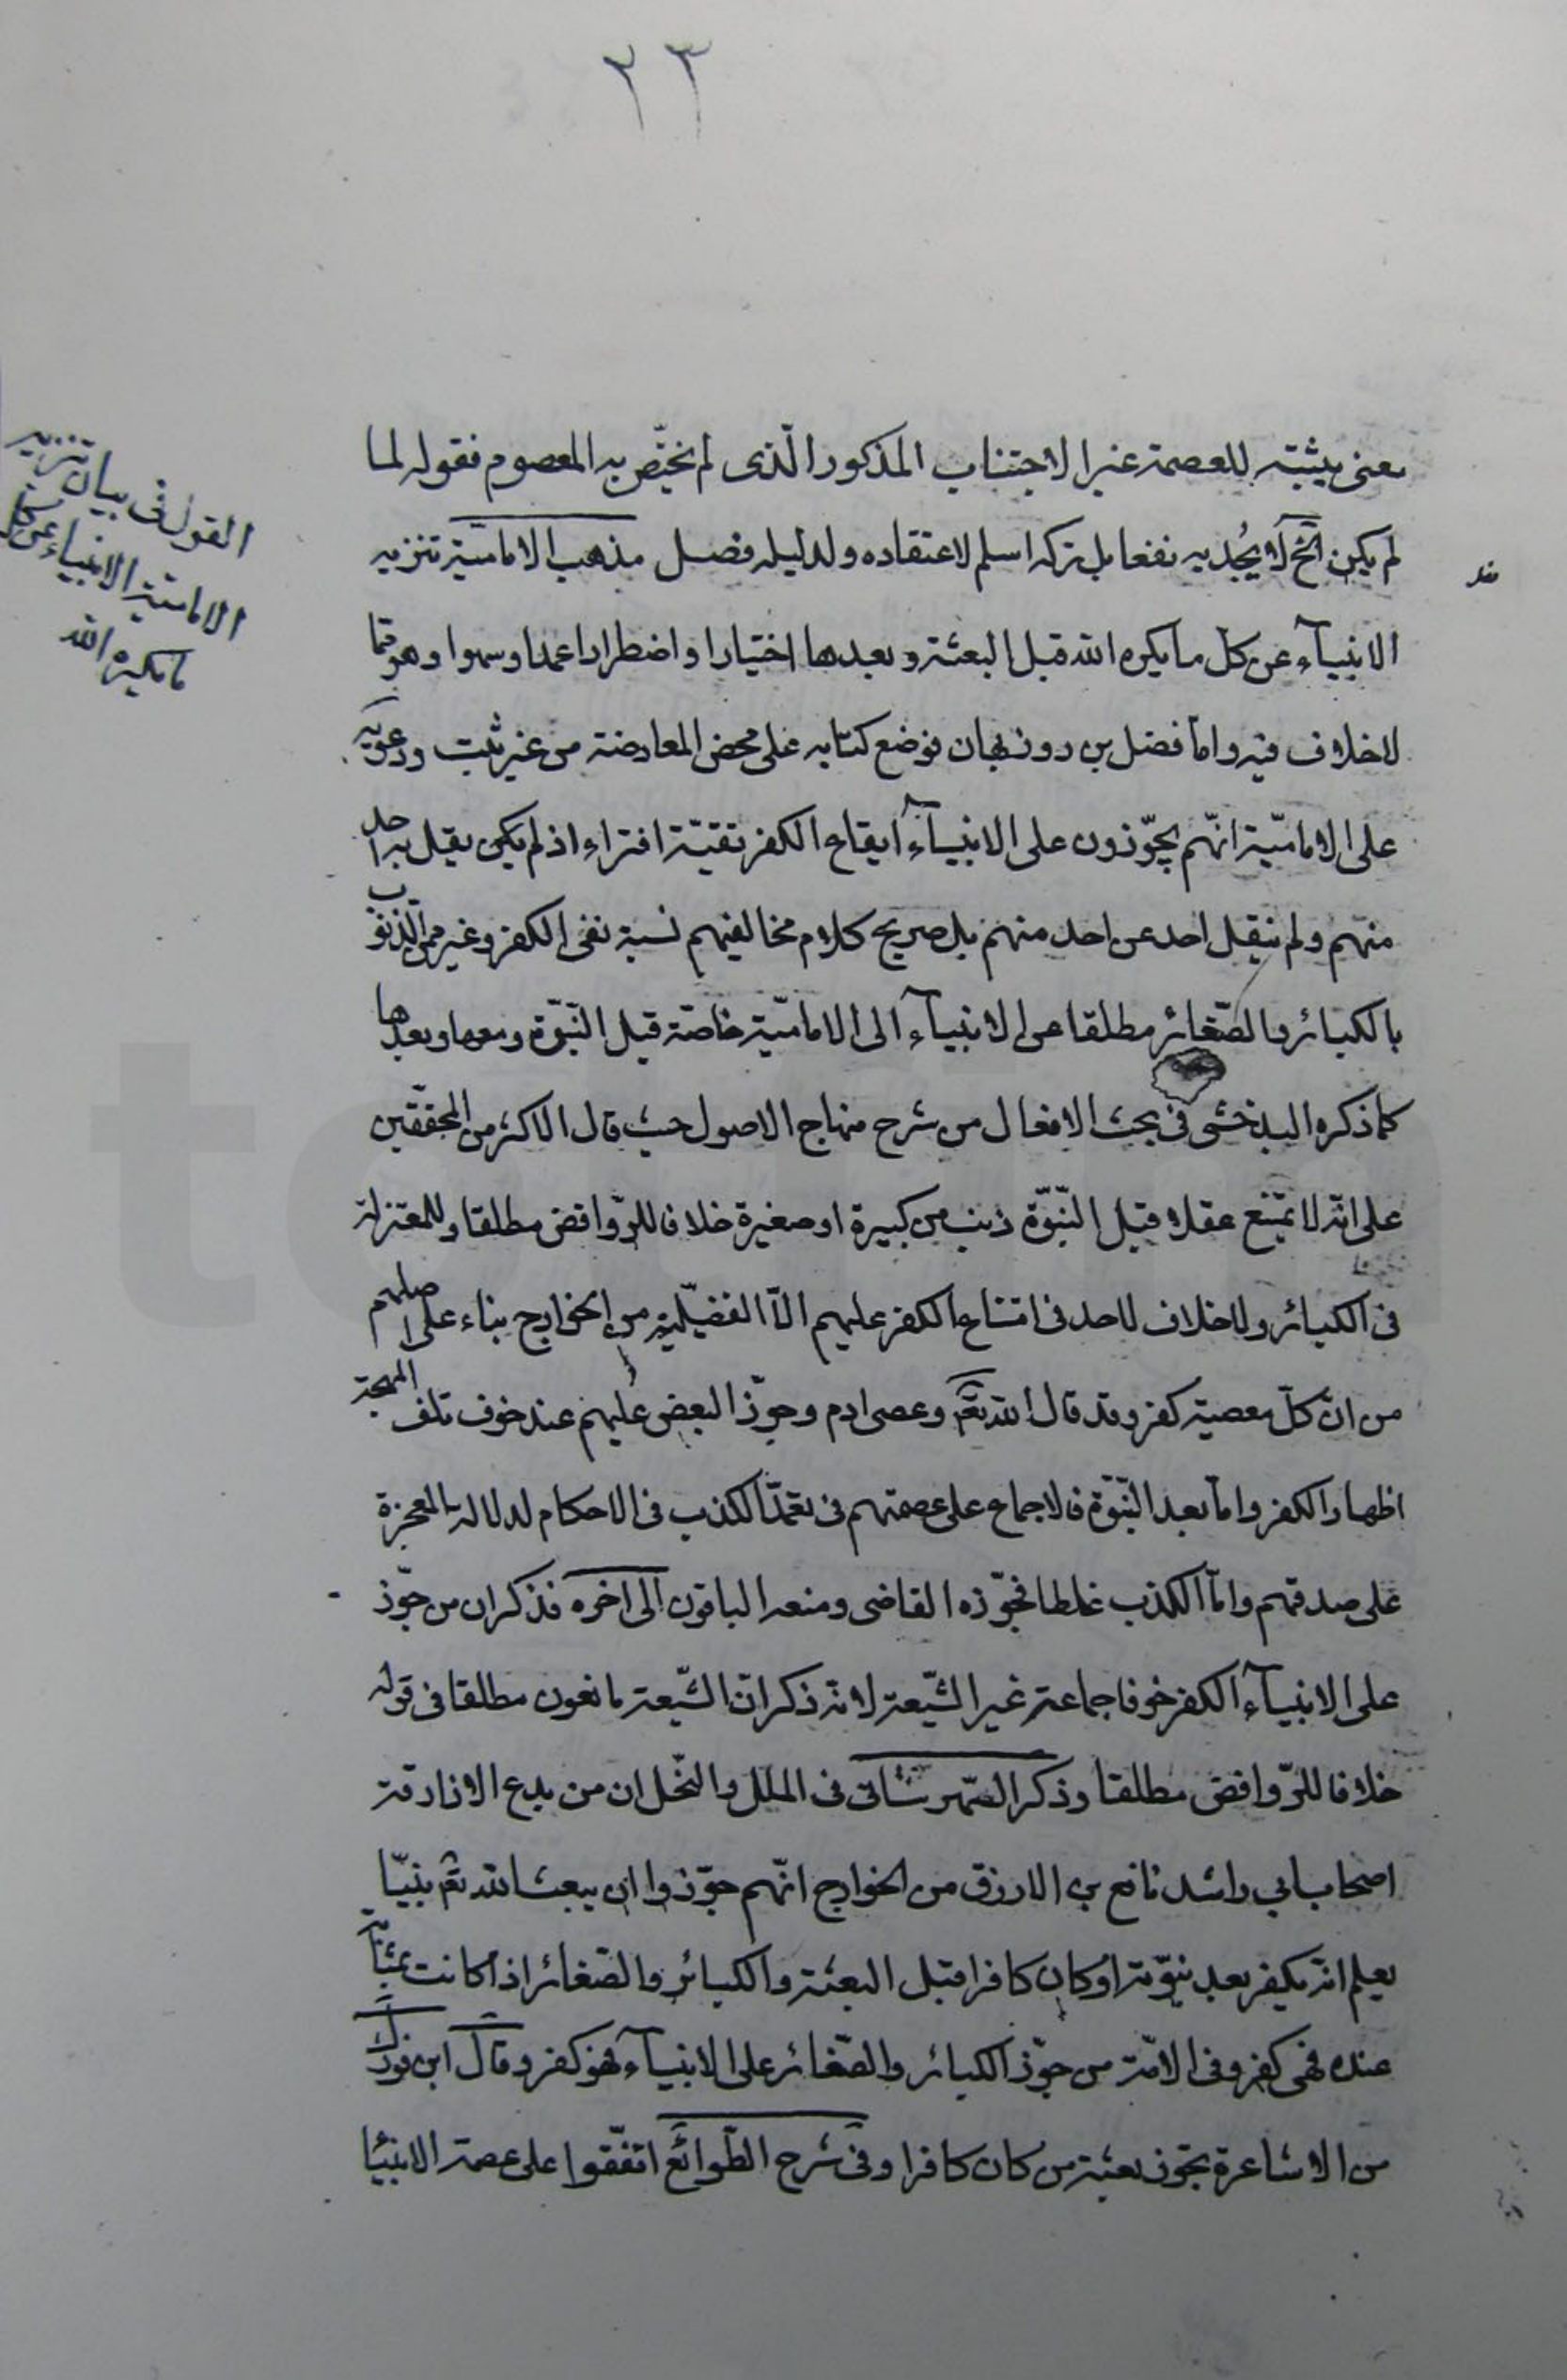 ٢٣
معنى يثبته للعصمة غير الاجتناب المذكور الّذى لم يختّص به المعصوم فقوله لما
لم يكن الخ لا يُجديه نفعا بل تركه اسلم لاعتقاده ولدليله فصل مذهب الاماميّة تنزيه
الانبيآء عن كل ما يكره الله قبل البعثة وبعدها اختيارا واضطرارا عمدا وسهوا وهو ممّا
لاخلاف فيه وامّا فضل بن روزبهان فوضع كتابه على محض المعارضة من غير ثبت ودعويه
على الاماميّة انّهم يجّوزون على الانبيآء ايقاع الكفر تقيّة افتراء اذ لم يكن يقل به احد
منهم ولم ينقل احد عن احد منهم بل صريح كلام مخالفيهم نسبة نفى الكفر وغيره من الذنوب
بالكبائر والصّغائر مطلقا عن الانبيآء الى الاماميّة خاصّة قبل النّبّوة ومعها وبعدها
كما ذكره البدخشى فى بحث الافعال من شرح منهاج الاصول حيث قال الاكثر من المحقّقين
على انّه لا يمتنع عقلا قبل النّبّوة ذنب من كبيرة او صغيرة خلافا للرّوافض مطلقا وللمعتزلة
فى الكبائر ولاخلاف لاحد فى امتناع الكفر عليهم الّا الفضيليّة من الخوارج بناء على اصلهم
من انّ كلّ معصية كفر وقد قال الله تعم وعصى ادم وجوّز البعض عليهم عند خوف تلف المهجة
اظهار الكفر وامّا بعد النّبّوة فالاجماع على عصمتهم فى تعمّد الكذب فى الاحكام لدلالة المعجزة
على صدقهم وامّا الكذب غلطا فجوّزه القاضى ومنعه الباقون الى اخره فذكر ان من جوّز
على الانبيآء الكفر خوفا جماعة غير الشّيعة لانه ذكر انّ الشّيعة مانعون مطلقا فى قوله
خلافا للرّوافض مطلقا وذكر الشّهرستانى فى الملل والنّحل ان من بدع الازارقة
اصحاب ابى راشد نافع بن الازرق من الخوارج انّهم جوّزوا ان يبعث الله تعم نبيّا
يعلم انّه يكفر بعد نبوّته او كان كافرا قبل البعثة والكبائر والصّغائر اذا كانت بمثابة
عنده فهى كفر وفى الامّة من جوّز الكبائر والصّغائر على الانبيآء فهو كفر وقال ابن فورك
من الاشاعرة يجوز بعثة من كان كافرا وفى شرح الطّوالع اتفّقوا على عصمة الانبيا
القول فى بيان تنزيه
الاماميّة الانبياء عن كل
ما يكره الله